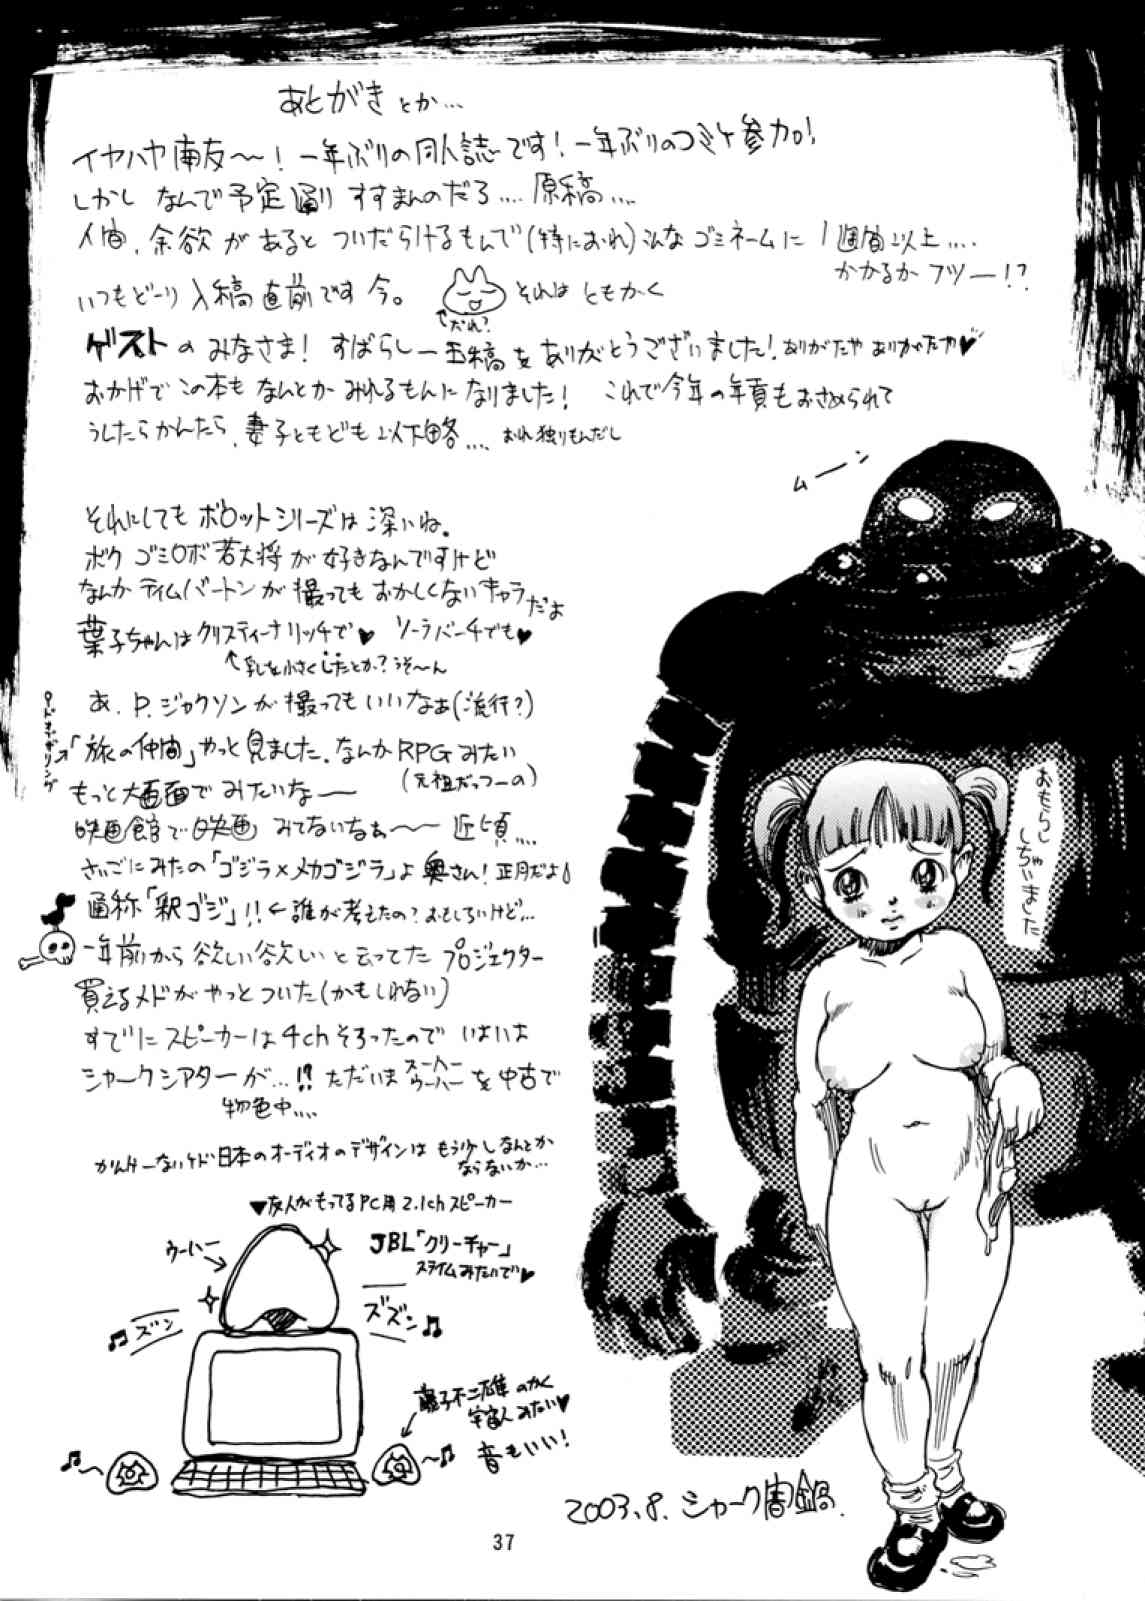 あとがきとか…
イヤハヤ南友〜！一年ぶりの同人誌です！一年ぶりのコミケ参加！
しかし なんで予定通り すすまんのだろ…. 原稿….
人間、余欲が あると ついだらけるもんで(特におれ)こんな ゴミネームに 1週間以上….
かかるか フツー!?
いつもどーり 入稿直前です 今。
それは ともかく
↑だれ?
ゲストの みなさま！ すばらしー玉稿を ありがとうございました！ありがたや ありがたや♥
おかげで この本も なんとか みれるもんになりました！ これで今年の年貢もおさめられて
うしたらかんたら、妻子ともども 以下略…. おれ独りもんだし
ムーン
それにしても ボロットシリーズは 深いね。
ボク ゴミロボ若大将が 好きなんですけど
なんか ティムバートンが 撮っても おかしくないキャラだよ
葉子ちゃんは クリスティーナリッチで♥ ソーラバーチでも♥
↑乳を小さくしたとか？うそ〜ん
あ、P.ジャクソンが 撮っても いいなぁ(流行?)
ロードオブザリング
「旅の仲間」やっと見ました。なんか RPGみたい
(元祖だっつーの)
もっと大画面で みたいなー
映画館で映画 みてないなぁ〜〜 近頃….
さいごにみたの「ゴジラ×メカゴジラ」よ 奥さん！正月だよ！
通称「釈ゴジ」!!←誰が考えたの？おもしろいけど…
一年前から 欲しい欲しい と云ってた プロジェクター
買えるメドが やっと ついた(かもしれない)
すでに スピーカーは 4ch そろったので いよいよ
シャークシアターが…!? ただいま スーパーウーハーを 中古で
物色中….
かんけーないケド 日本のオーディオのデザインは もう少しなんとか
ならないか…
▼友人がもってるPC用 2.1chスピーカー
ウーハー
JBL「クリーチャー」
スライムみたいで♥
ズン
ズズン
藤子不二雄のかく
宇宙人みたい♥
音もいい！
おもらし
しちゃいました
2003.8. シャーク闇鍋.
37